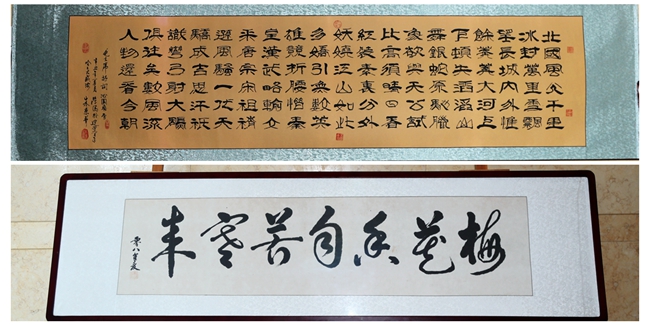 北國風光千里
冰封萬里雪飄
望長城內外惟
餘莽莽大河上
下頓失滔滔山
舞銀蛇原馳臘
象欲與天公試
比高須晴日看
紅裝素裹分外
妖嬈江山如此
多嬌引無數英
雄競折腰惜秦
皇漢武略輸文
采唐宗宋祖稍
遜風騷一代天
驕成吉思汗祇
識彎弓射大鵰
俱往矣數風流
人物還看今朝
梅花香自苦寒来